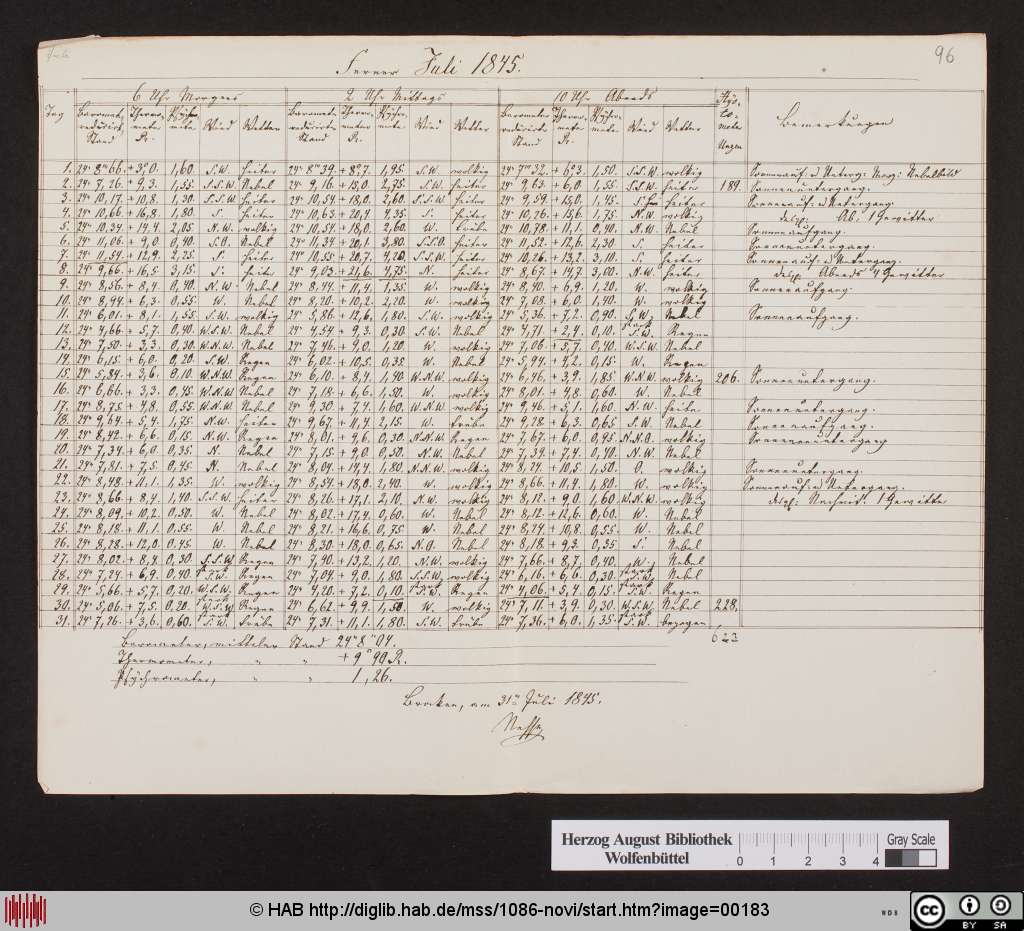 96
Ferner Juli 1845.
6 Uhr Morgens 2 Uhr Mittags 10 Uhr Abends
Tag Baromet. reducirt. Stand Thermometer R. Wind Wetter Bemerkungen
1. 24" 8‴66. + 3,0. 1,60. S.W. heiter 24" 8‴39. + 8,7. 1,95. S.W. wolkig 24" 7‴32. + 6,3. 1,50. S.S.W. wolkig
2. 24" 7,26. + 9,3. 1,55. S.S.W. Nebel 24" 9,16. + 15,0. 2,75. S.W. heiter 24" 9,63. + 6,0. 1,55. S.S.W. heiter 189. Sonnenuntergang.
3. 24" 10,17. + 10,8. 1,30. S.S.W. heiter 24" 10,54. + 18,0. 2,60. S.S.W. heiter 24" 9,59. + 15,0. 1,45.
4. 24" 10,66. + 16,8. 1,80. S. heiter 24" 10,63. + 20,4. 4,35. S. heiter 24" 10,76. + 15,6. 1,75. N.W. wolkig Ab. 1 Gewitter
5. 24" 10,34. + 14,4. 2,05. N.W. wolkig 24" 10,54. + 18,0. 2,60. W. trübe 24" 10,78. + 11,1. 0,40. N.W. Nebel Sonnenaufgang.
6. 24" 11,06. + 9,0. 0,40. S.O. Nebel 24" 11,34. + 20,1. 3,80. S.S.O. heiter 24" 11,52. + 12,6. 2,30. S. heiter Sonnenuntergang.
7. 24" 11,54. + 12,9. 2,25. S. heiter 24" 10,55. + 20,7. 4,20. S.S.W. heiter 24" 10,26. + 13,2. 3,10. S. heiter Sonnenauf: u Untergang.
8. 24" 9,66. + 16,5. 3,15. S. heiter 24" 9,03. + 21,6. 4,75. N. heiter 24" 8,67. + 14,7. 3,00. N.W. heiter desgl. Abends 4 Gewitter
9. 24" 8,56. + 8,4. 0,40. N.W. Nebel 24" 8,44. + 11,4. 1,35. W. wolkig 24" 8,40. + 6,9. 1,20. W. wolkig Sonnenaufgang.
10. 24" 8,44. + 6,3. 0,55. W. Nebel 24" 8,20. + 10,2. 2,20. W. wolkig 24" 7,08. + 6,0. 1,40. W. wolkig
11. 24" 6,01. + 8,1. 1,55. S.W. wolkig 24" 5,86. + 12,6. 1,80. S.W. wolkig 24" 5,36. + 7,2. 0,90. S.W. Nebel Sonnenaufgang.
12. 24" 4,66. + 5,7. 0,40. W.S.W. Nebel 24" 4,54. + 9,3. 0,30. S.W. Nebel 24" 4,71. + 2,4. 0,10. stark S.W. Regen
13. 24" 7,50. + 3,3. 0,30. W.N.W. Nebel 24" 7,46. + 9,0. 1,20. W. wolkig 24" 7,06. + 5,7. 0,40. W.S.W. Nebel
14. 24" 6,15. + 6,0. 0,20. S.W. Regen 24" 6,02. + 10,5. 0,35. W. Nebel 24" 5,94. + 4,2. 0,15. W. Regen
15. 24" 5,84. + 3,6. 0,10. W.N.W. Regen 24" 6,10. + 8,4. 1,40. W.N.W. wolkig 24" 6,46. + 3,9. 1,85. W.N.W. wolkig 206. Sonnenuntergang.
16. 24" 6,66. + 3,3. 0,45. W.N.W. Nebel 24" 7,18. + 6,6. 1,50. W. wolkig 24" 8,01. + 4,8. 0,60. W. Nebel
17. 24" 8,75. + 4,8. 0,55. W.N.W. Nebel 24" 9,30. + 7,4. 1,60. W.N.W. wolkig 24" 9,46. + 5,1. 1,60. N.W. heiter Sonnenuntergang.
18. 24" 9,64. + 5,4. 1,75. N.W. heiter 24" 9,67. + 11,4. 2,15. W. trübe 24" 9,28. + 6,3. 0,65. S.W. Nebel Sonnenaufgang.
19. 24" 8,42. + 6,6. 0,15. N.W. Regen 24" 8,01. + 4,6. 0,30. N.N.W. Regen 24" 7,67. + 6,0. 0,45. N.N.O. wolkig Sonnenuntergang
20. 24" 7,34. + 6,0. 0,35. N. Nebel 24" 7,15. + 9,0. 0,50. N.W. Nebel 24" 7,39. + 7,4. 0,40. N.W. Nebel
21. 24" 7,81. + 7,5. 0,45. N. Nebel 24" 8,04. + 14,4. 1,80. N.N.W. wolkig 24" 8,24. + 10,5. 1,50. O. wolkig Sonnenuntergang.
22. 24" 8,48. + 11,1. 1,35. W. wolkig 24" 8,54. + 18,0. 2,40. W. wolkig 24" 8,66. + 11,4. 1,80. W. wolkig Sonnenauf: u Untergang.
23. 24" 8,66. + 8,4. 1,40. S.S.W. heiter 24" 8,26. + 17,1. 2,10. N.W. wolkig 24" 8,12. + 9,0. 1,60. W.N.W. wolkig desgl. Nachmit. 1 Gewitter
24. 24" 8,09. + 10,2. 0,50. W. Nebel 24" 8,02. + 17,4. 0,60. W. Nebel 24" 8,12. + 12,6. 0,60. W. Nebel
25. 24" 8,18. + 11,1. 0,55. W. Nebel 24" 8,21. + 16,6. 0,75. W. Nebel 24" 8,24. + 10,8. 0,55. W. Nebel
26. 24" 8,28. + 12,0. 0,45. W. Nebel 24" 8,30. + 18,0. 0,65. N.O. Nebel 24" 8,18. + 9,3. 0,35. S. Nebel
27. 24" 8,02. + 8,4. 0,30. S.S.W. Regen 24" 7,90. + 13,2. 1,20. N.W. wolkig 24" 7,66. + 8,7. 0,40. W. Nebel
28. 24" 7,24. + 6,9. 0,40. S.W. Regen 24" 7,04. + 9,0. 1,80. S.S.W. wolkig 24" 6,16. + 6,6. 0,30. stark S.W. Nebel
29. 24" 5,66. + 5,7. 0,20. W.S.W. Regen 24" 4,20. + 7,2. 0,10. stark S.W. Regen 24" 4,06. + 5,4. 0,15. stark S.W. Regen
30. 24" 5,06. + 7,5. 0,20. stark W.S.W. Regen 24" 6,62. + 9,9. 1,50. W. wolkig 24" 7,11. + 3,9. 0,30. W.S.W. Nebel 228.
31. 24" 7,26. + 3,6. 0,60. stark S.W. trübe 24" 7,31. + 11,1. 1,80. S.W. trübe 24" 7,36. + 6,0. 1,35. stark S.W. bezogen
623
Barometer, mittlerer Stand 24" 8‴ 04.
Thermometer, " " + 9° 90 R.
Psychrometer, " " 1,26.
Brocken, am 31n Juli 1845.
Nehse
Herzog August Bibliothek
Wolfenbüttel
0 1 2 3 4
Gray Scale
© HAB http://diglib.hab.de/mss/1086-novi/start.htm?image=00183
WDB
CC BY SA